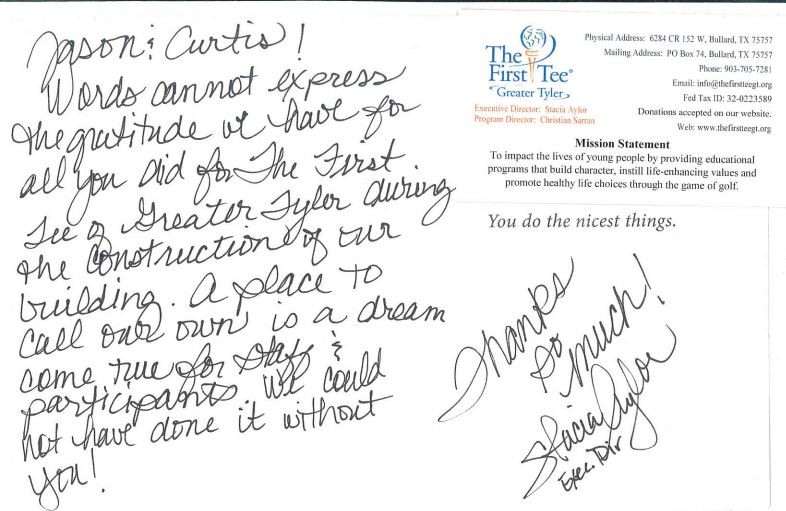 Jason & Curtis!
Words cannot express
the gratitude we have for
all you did for The First
Tee of Greater Tyler during
the construction of our
building. A place to
call our own is a dream
come true for staff &
participants. We could
not have done it without
you!
The
First Tee®
Greater Tyler
Executive Director: Stacia Aylor
Program Director: Christian Sarran
Physical Address: 6284 CR 152 W, Bullard, TX 75757
Mailing Address: PO Box 74, Bullard, TX 75757
Phone: 903-705-7281
Email: info@thefirstteegt.org
Fed Tax ID: 32-0223589
Donations accepted on our website.
Web: www.thefirstteegt.org
Mission Statement
To impact the lives of young people by providing educational
programs that build character, instill life-enhancing values and
promote healthy life choices through the game of golf.
You do the nicest things.
Thanks
so
much!
Stacia Aylor
Exec. Dir